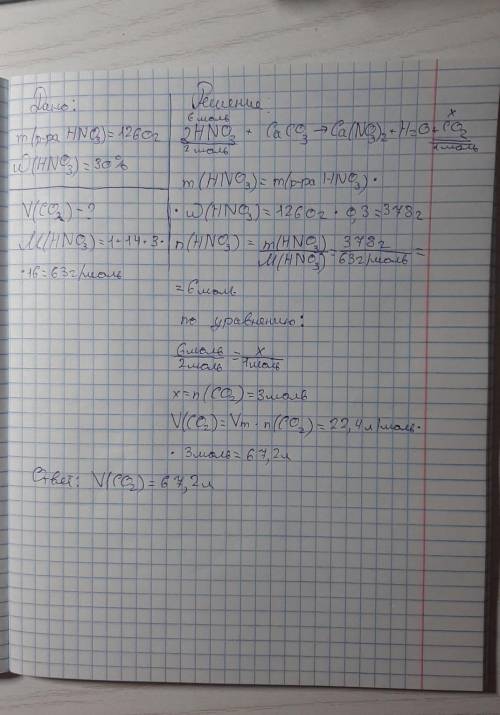 Дано:
m(р-ра HNO3)=1260г
W(HNO3)=30%
V(CO2)-?
M(HNO3)=1·14·3·
·16=63г/моль
Решение:
6моль x
2HNO3 + CaCO3→Ca(NO3)2+H2O+CO2
2моль 1моль
m(HNO3)=m(р-ра HNO3)·
·W(HNO3)=1260г·0,3=378г
n(HNO3)=m(HNO3)/M(HNO3)=378г/63г/моль=
=6моль
по уравнению:
6моль/2моль=x/1моль
x=n(CO2)=3моль
V(CO2)=Vm·n(CO2)=22,4л/моль·
·3моль=67,2л
Ответ: V(CO2)=67,2л